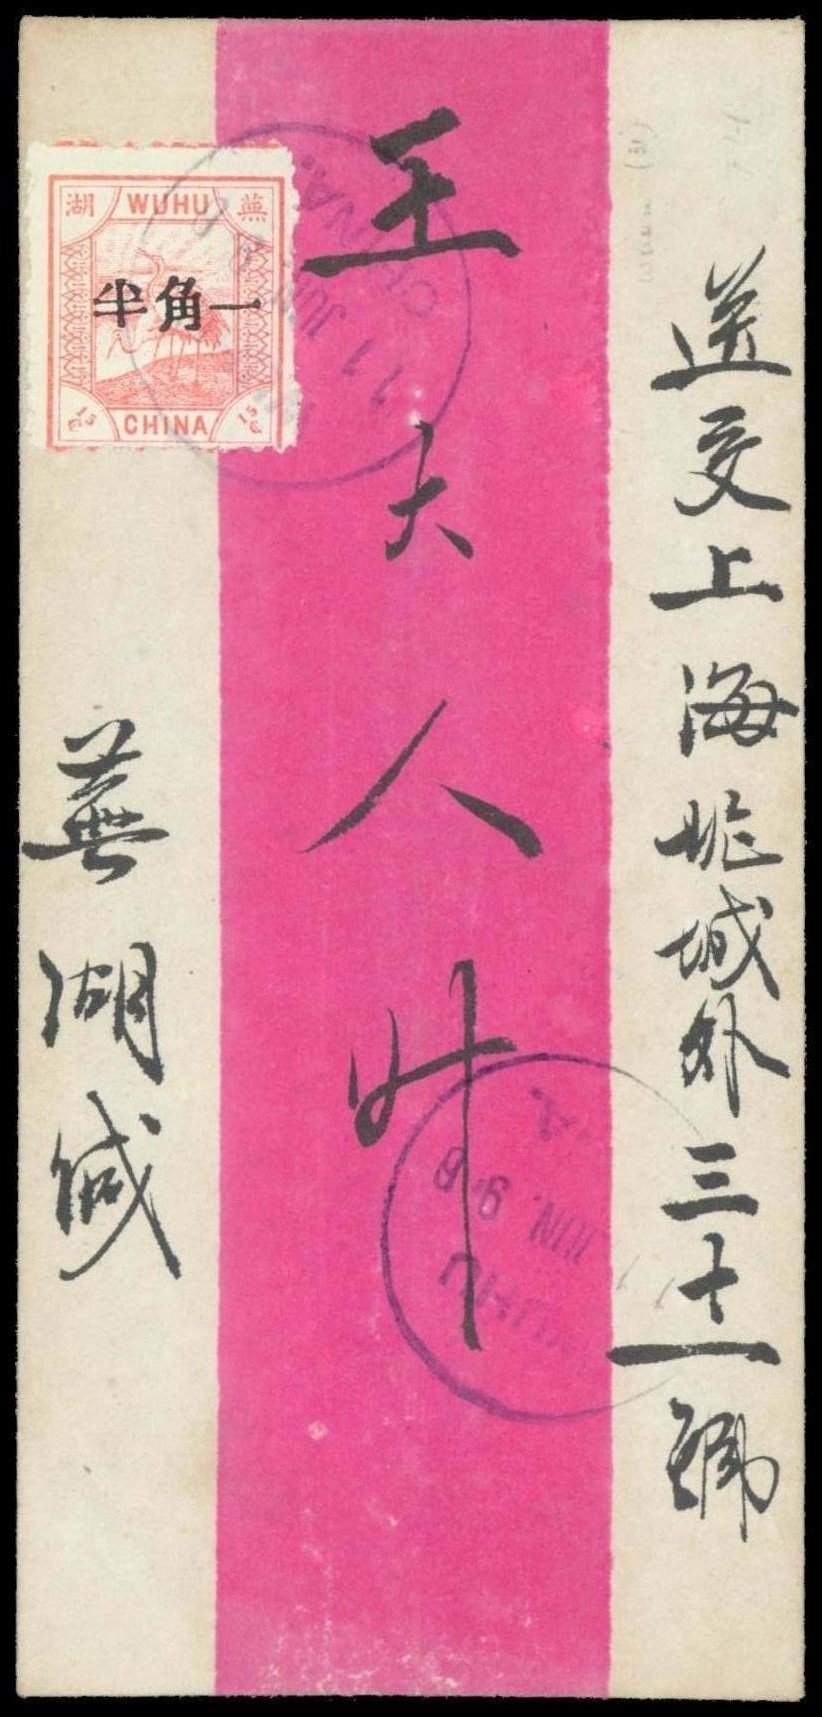 送交上海北城外三十一號
王大人升
蕪湖緘
湖 WUHU 蕪
半角一
CHINA
15c
15c
CHINA.
11 JUN
WUHU
JUN. 96